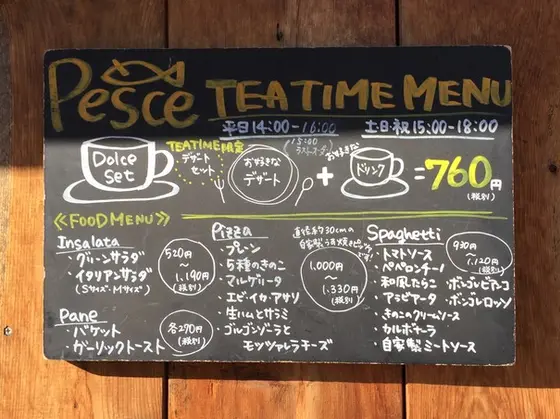 Pesce TEA TIME MENU
平日14:00-16:00 土日・祝15:00-18:00
15:00
ラストオーダー
Dolce Set
TEATIME限定
デザートセット
お好きなデザート
+
お好きなドリンク
=760円
(税別)
《FOOD MENU》
Insalata
・グリーンサラダ
・イタリアンサラダ
(Sサイズ・Mサイズ)
520円
~
1,190円
(税別)
Pane
・バケット
・ガーリックトースト
各270円
(税別)
Pizza
直径約30cmの
自家製
・プレーン
・5種のきのこ
・マルゲリータ
・エビ・イカ・アサリ
・生ハムとサラミ
・ゴルゴンゾーラと
モッツァレラチーズ
1,000円
~
1,330円
(税別)
Spaghetti
930円
~
1,120円
(税別)
・トマトソース
・ペペロンチーノ
・和風たらこ
・アラビアータ
・きのこクリームソース
・カルボナーラ
・自家製ミートソース
・ボンゴレビアンコ
・ボンゴレロッソ